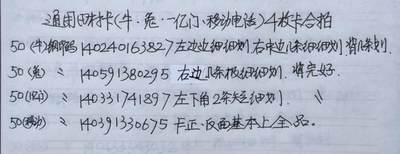 通用田村卡(牛·兔·一亿门·移动电话)4枚卡合拍
50(牛)编码140240163827左边边细细划.右半几条细细划.背几条划.
50(兔) 〃 140591380295 右边几条极细细划.背完好.
50(亿门) 〃 140331741897左下角2条短细划. 〃
50(移动) 〃 140391330675 卡正·反面基本上全品。